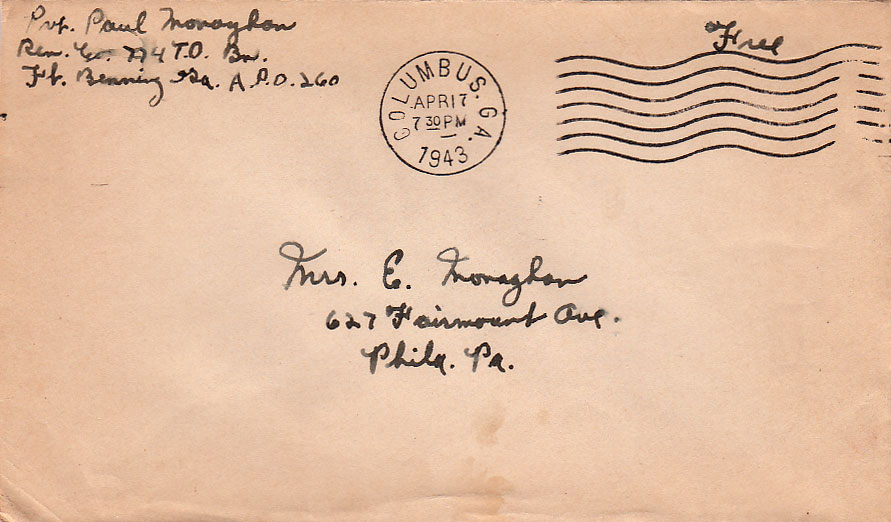 Pvt. Paul Monaghan
Ren. Co. 774 T.D. Bn.
Ft. Benning Ga. A.P.O. 260
Free
COLUMBUS, GA.
APR 17
7 30 PM
1943
Mrs. E. Monaghan
627 Fairmount Ave.
Phila. Pa.